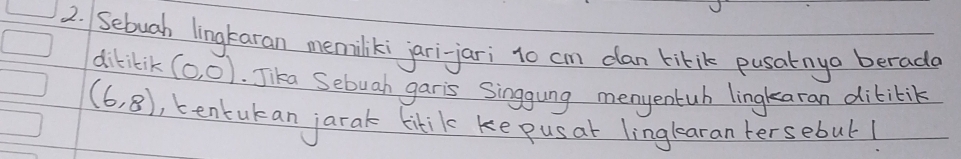 2. Sebuah lingkaran memiliki jari-jari 10 cm dan titik pusatnya berada
dititik (0,0). Jika Sebuah garis Singgung menyentuh lingkaran dititik
(6,8), tentukan jarak titik ke pusat lingkaran tersebut!